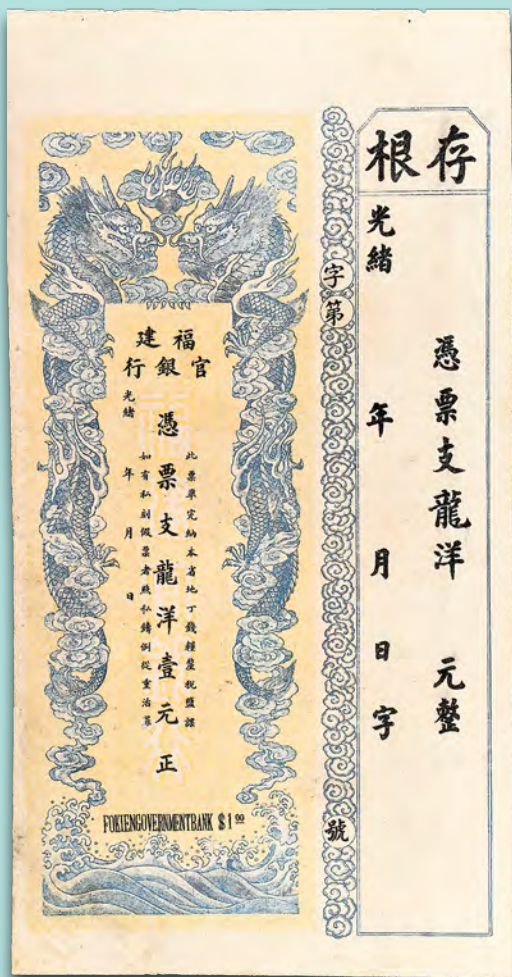 存根
憑票支龍洋 元整
光緒 年 月 日 字
字第 號
福建
官銀行
此票準完納本省地丁錢糧釐稅鹽課
憑票支龍洋壹元正
如有私刻假票者照私鑄例從重治罪
光緒 年 月 日
FOKIEN GOVERNMENT BANK $1.00